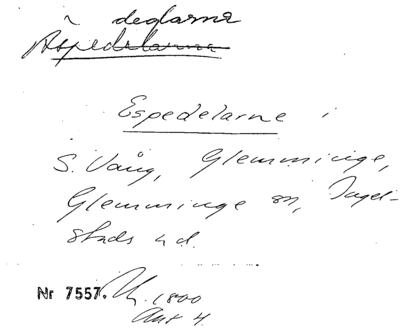 i deglarna
Aspedelarna
Espedelarne i
S. Vång, Glemminge,
Glemminge sn, Ingel-
stads hd.
Nr 7557. 1800
Ant 4.